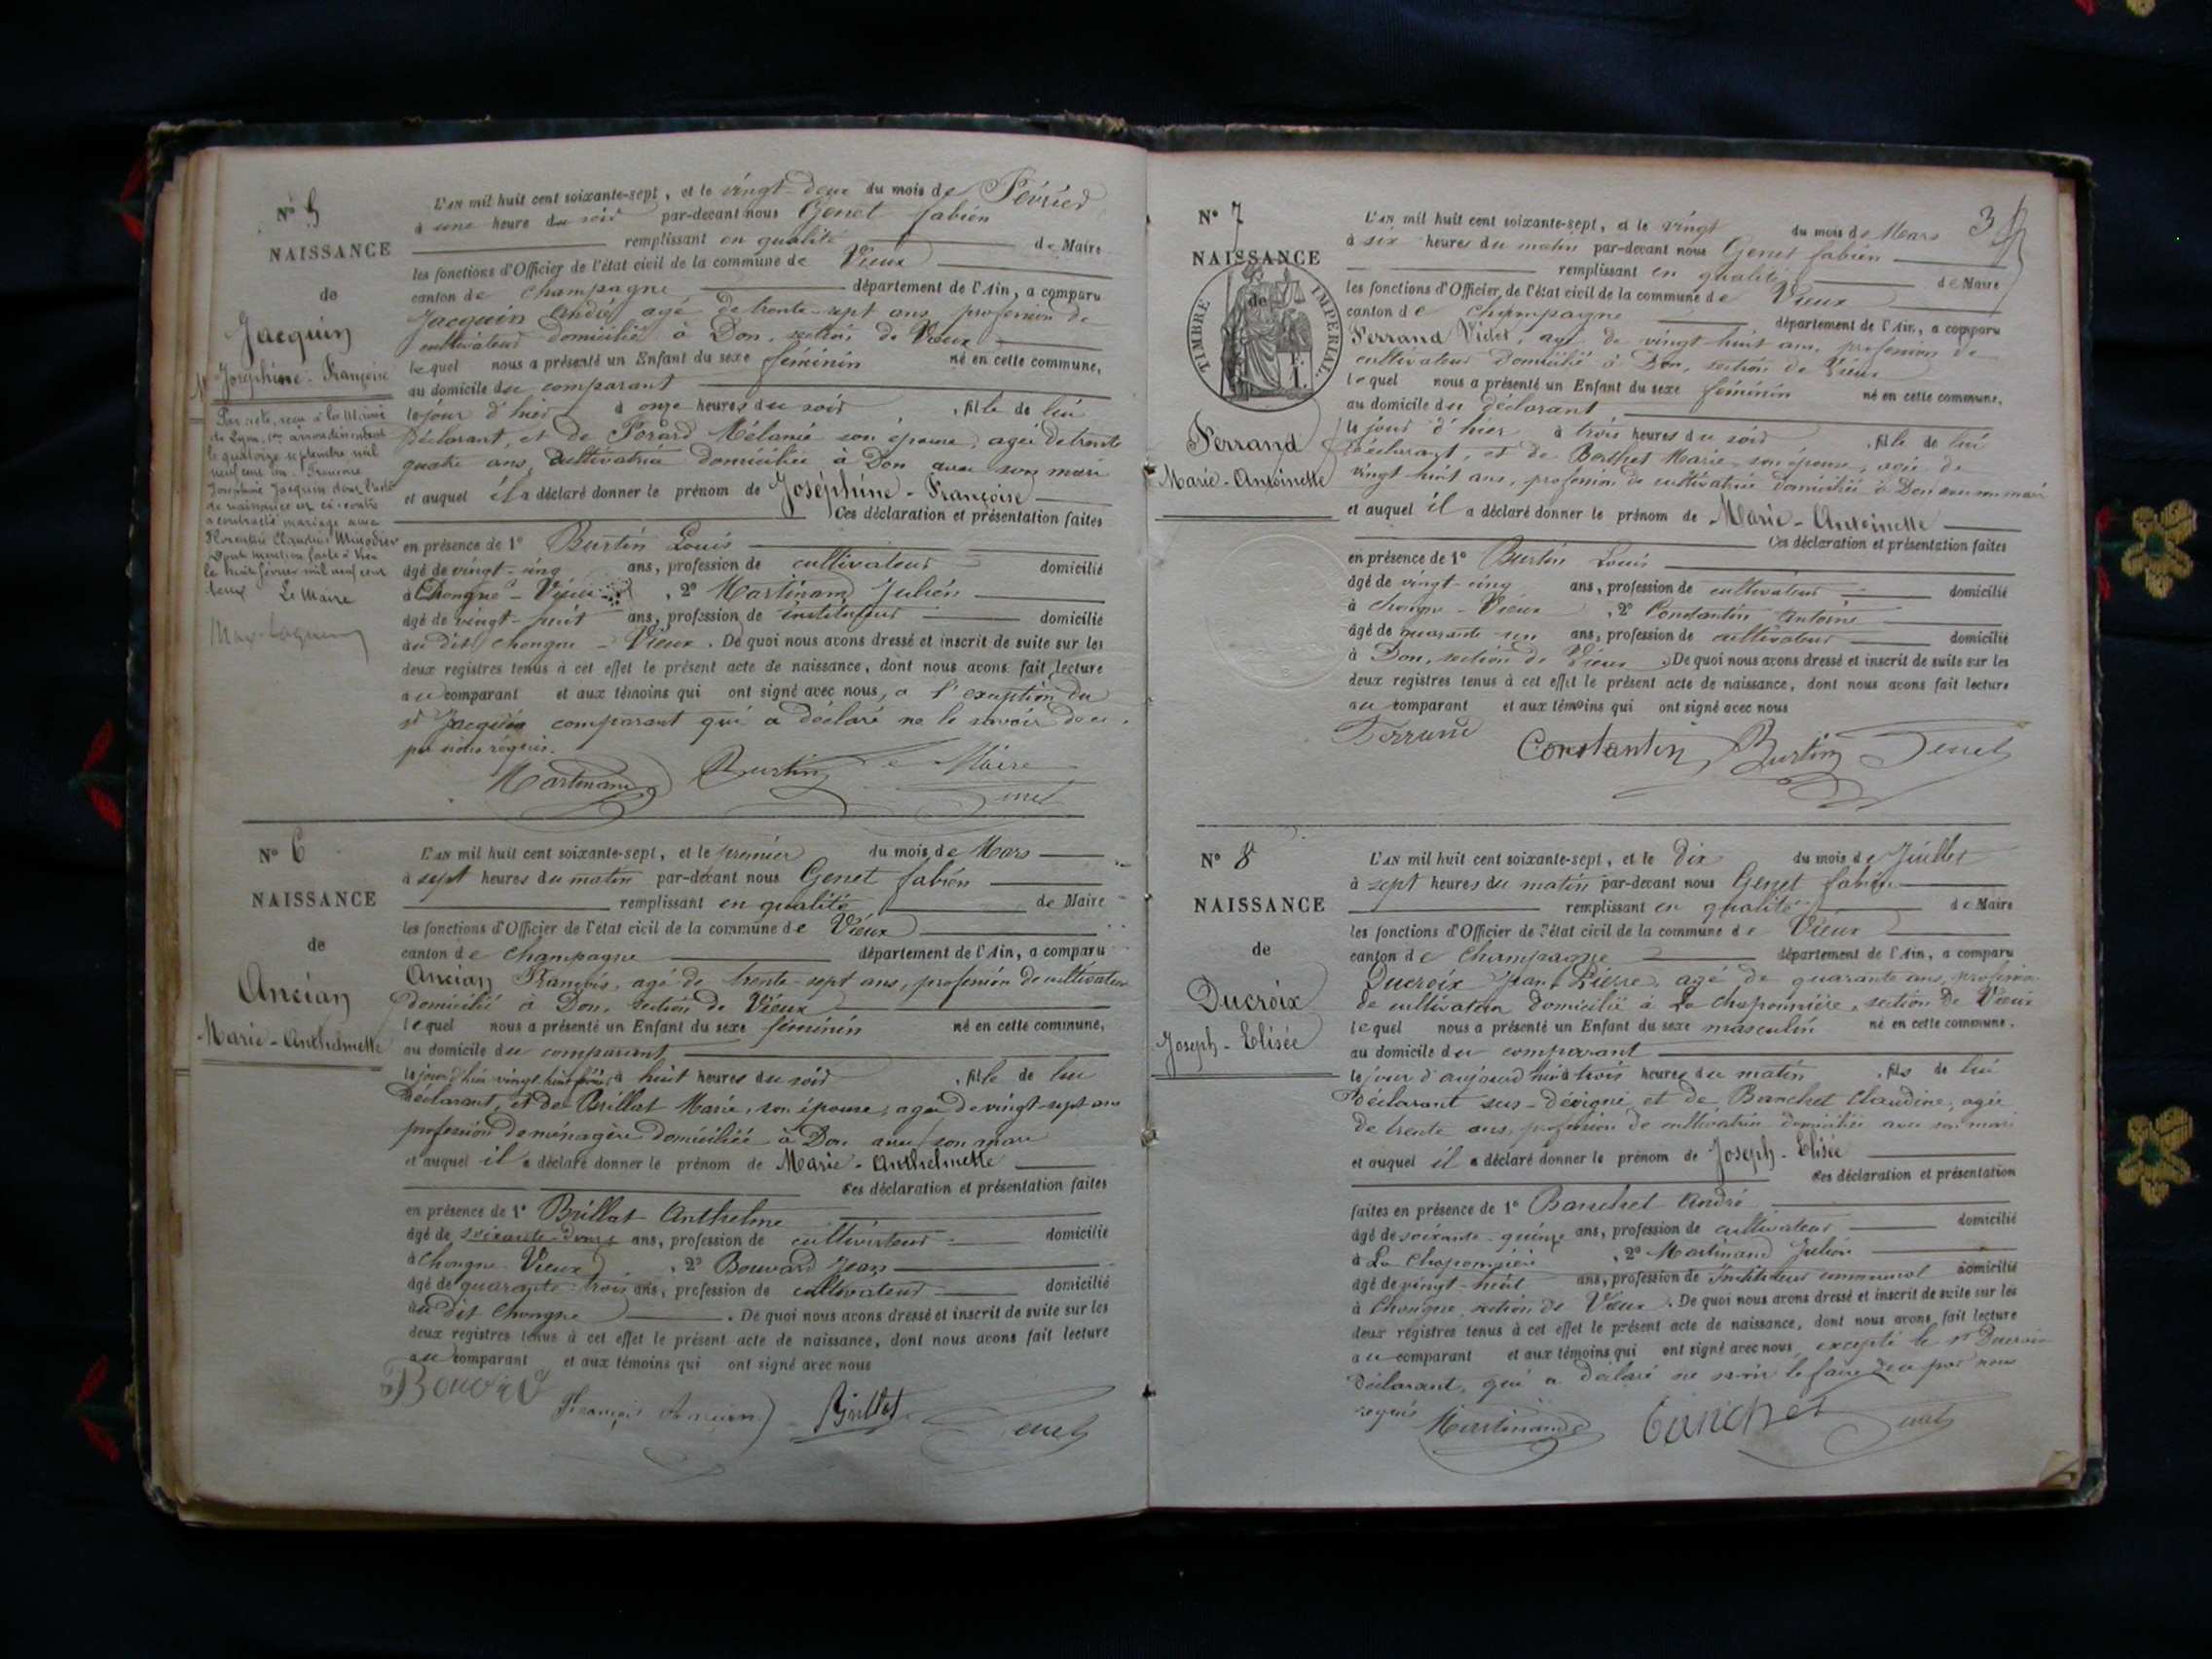 N° 5
NAISSANCE
de
Jacquin
Joséphine-Françoise
Par acte, reçu à la Mairie
de Lyon, arrondissement
le quatorze septembre mil
neuf cent un. Françoise
Joséphine Jacquin dont l'acte
de naissance est ci-contre
a contracté mariage avec
Florentin Claudius
Dont mention faite à Vieu
le huit février mil neuf cent
deux Le Maire
L'AN mil huit cent soixante-sept, et le vingt-deux du mois de Février
à une heure du soir par-devant nous Genet fabien
remplissant en qualité de Maire
les fonctions d'Officier de l'état civil de la commune de Vieux
canton de Champagne département de l'Ain, a comparu
Jacquin André, agé de trente-sept ans, profession de
cultivateur domicilié à Don, section de Vieux
lequel nous a présenté un Enfant du sexe féminin né en cette commune,
au domicile du comparant
le jour d'hier à onze heures du soir, fille de lui
Déclarant, et de Mélanie son épouse, agée de trente
quatre ans, cultivatrice domiciliée à Don avec son mari
et auquel il a déclaré donner le prénom de Joséphine-Françoise
Ces déclaration et présentation faites
en présence de 1° Burtin Louis
âgé de vingt-cinq ans, profession de cultivateur domicilié
à Chongne-Vieux, 2° Martinand Julien
âgé de vingt-huit ans, profession de instituteur domicilié
au dit Chongne-Vieux. De quoi nous avons dressé et inscrit de suite sur les
deux registres tenus à cet effet le présent acte de naissance, dont nous avons fait lecture
au comparant et aux témoins qui ont signé avec nous, a l'exception du
sr Jacquin comparant qui a déclaré ne le savoir de ce
par nous réquis.
Martinand Burtin Le Maire
Genet
N° 6
NAISSANCE
de
Ancian
Marie-Anthelmette
L'AN mil huit cent soixante-sept, et le premier du mois de Mars
à sept heures du matin par-devant nous Genet fabien
remplissant en qualité de Maire
les fonctions d'Officier de l'état civil de la commune de Vieux
canton de Champagne département de l'Ain, a comparu
Ancian François, agé de trente-sept ans, profession de cultivateur
domicilié à Don, section de Vieux
lequel nous a présenté un Enfant du sexe féminin né en cette commune,
au domicile du comparant
le jour d'hier vingt huit à huit heures du soir, fille de lui
Déclarant, et de Brillat Marie, son épouse, agée de vingt-sept ans
profession de ménagère domiciliée à Don avec son mari
et auquel il a déclaré donner le prénom de Marie-Anthelmette
Ces déclaration et présentation faites
en présence de 1° Brillat Anthelme
âgé de soixante-douze ans, profession de cultivateur domicilié
à Chongne Vieux, 2° Bouvard Jean
âgé de quarante-trois ans, profession de cultivateur domicilié
au dit Chongne. De quoi nous avons dressé et inscrit de suite sur les
deux registres tenus à cet effet le présent acte de naissance, dont nous avons fait lecture
au comparant et aux témoins qui ont signé avec nous
François Ancian Brillat Genet
3
N° 7
NAISSANCE
de
TIMBRE IMPERIAL
Ferrand
Marie-Antoinette
L'AN mil huit cent soixante-sept, et le vingt du mois de Mars
à six heures du matin par-devant nous Genet fabien
remplissant en qualité de Maire
les fonctions d'Officier de l'état civil de la commune de Vieux
canton de Champagne département de l'Ain, a comparu
Ferrand Victor, agé de vingt huit ans, profession de
cultivateur domicilié à Don, section de Vieux
lequel nous a présenté un Enfant du sexe féminin né en cette commune,
au domicile du déclarant
le jour d'hier à trois heures du soir, fille de lui
Déclarant, et de Berthet Marie son épouse, agée de
vingt huit ans, profession de cultivatrice domiciliée à Don avec son mari
et auquel il a déclaré donner le prénom de Marie-Antoinette
Ces déclaration et présentation faites
en présence de 1° Burtin Louis
âgé de vingt-cinq ans, profession de cultivateur domicilié
à Chongne-Vieux, 2° Constantin Antoine
âgé de quarante-un ans, profession de cultivateur domicilié
à Don, section de Vieux. De quoi nous avons dressé et inscrit de suite sur les
deux registres tenus à cet effet le présent acte de naissance, dont nous avons fait lecture
au comparant et aux témoins qui ont signé avec nous
Ferrand Constantin Burtin Genet
N° 8
NAISSANCE
de
Ducroix
Joseph-Elisée
L'AN mil huit cent soixante-sept, et le dix du mois de Juillet
à sept heures du matin par-devant nous Genet fabien
remplissant en qualité de Maire
les fonctions d'Officier de l'état civil de la commune de Vieux
canton de Champagne département de l'Ain, a comparu
Ducroix Jean Pierre, agé de quarante ans, profession
de cultivateur domicilié à La Chaponnière, section de Vieux
lequel nous a présenté un Enfant du sexe masculin né en cette commune.
au domicile du comparant
le jour d'aujourd'hui à trois heures du matin, fils de lui
Déclarant sus-désigné et de Banchet Claudine, agée
de trente ans, profession de cultivatrice domiciliée avec son mari
et auquel il a déclaré donner le prénom de Joseph-Elisée
Ces déclaration et présentation
faites en présence de 1° Banchet André
âgé de soixante-quinze ans, profession de cultivateur domicilié
à La Chaponnière, 2° Martinand Julien
âgé de vingt-huit ans, profession de Instituteur communal domicilié
à Chongne, section de Vieux. De quoi nous avons dressé et inscrit de suite sur les
deux registres tenus à cet effet le présent acte de naissance, dont nous avons fait lecture
au comparant et aux témoins qui ont signé avec nous, excepté le sr Ducroix
Déclarant, qui a déclaré ne savoir le faire de ce par nous
requis Martinand Banchet Genet